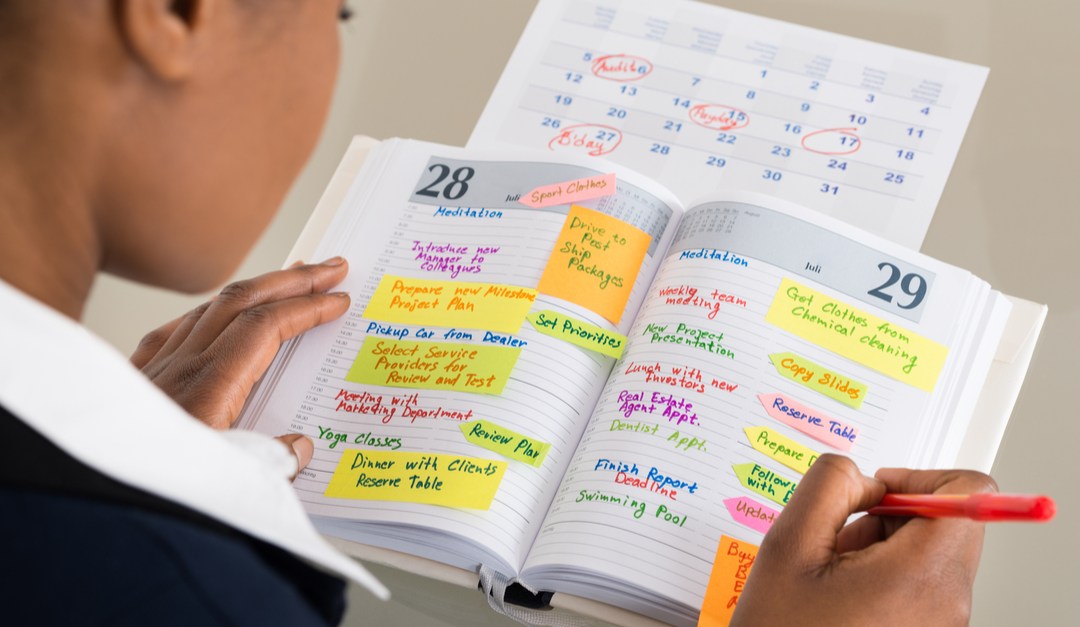 1 2 3 4
5 Audit 6 7 8 9 10 11
12 13 14 Payday 15 16 17 18
19 20 21 22 23 24 25
26 B'day 27 28 29 30 31
28
Juli
Sport Clothes
Meditation
Drive to
Post
Ship
Packages
Introduce new
Manager to
Colleagues
Prepare new Milestone
Project Plan
Set Priorities
Pickup Car from Dealer
Select Service
Providers for
Review and Test
Meeting with
Marketing Department
Review Plan
Yoga Classes
Dinner with Clients
Reserve Table
Juli
29
Meditation
Weekly team
meeting
Get Clothes from
Chemical cleaning
New Project
Presentation
Copy Slides
Lunch with new
Investors
Reserve Table
Real Estate
Agent Appt.
Dentist Appt.
Prepare
Follow
with
Finish Report
Deadline
Updat
Swimming Pool
Buy